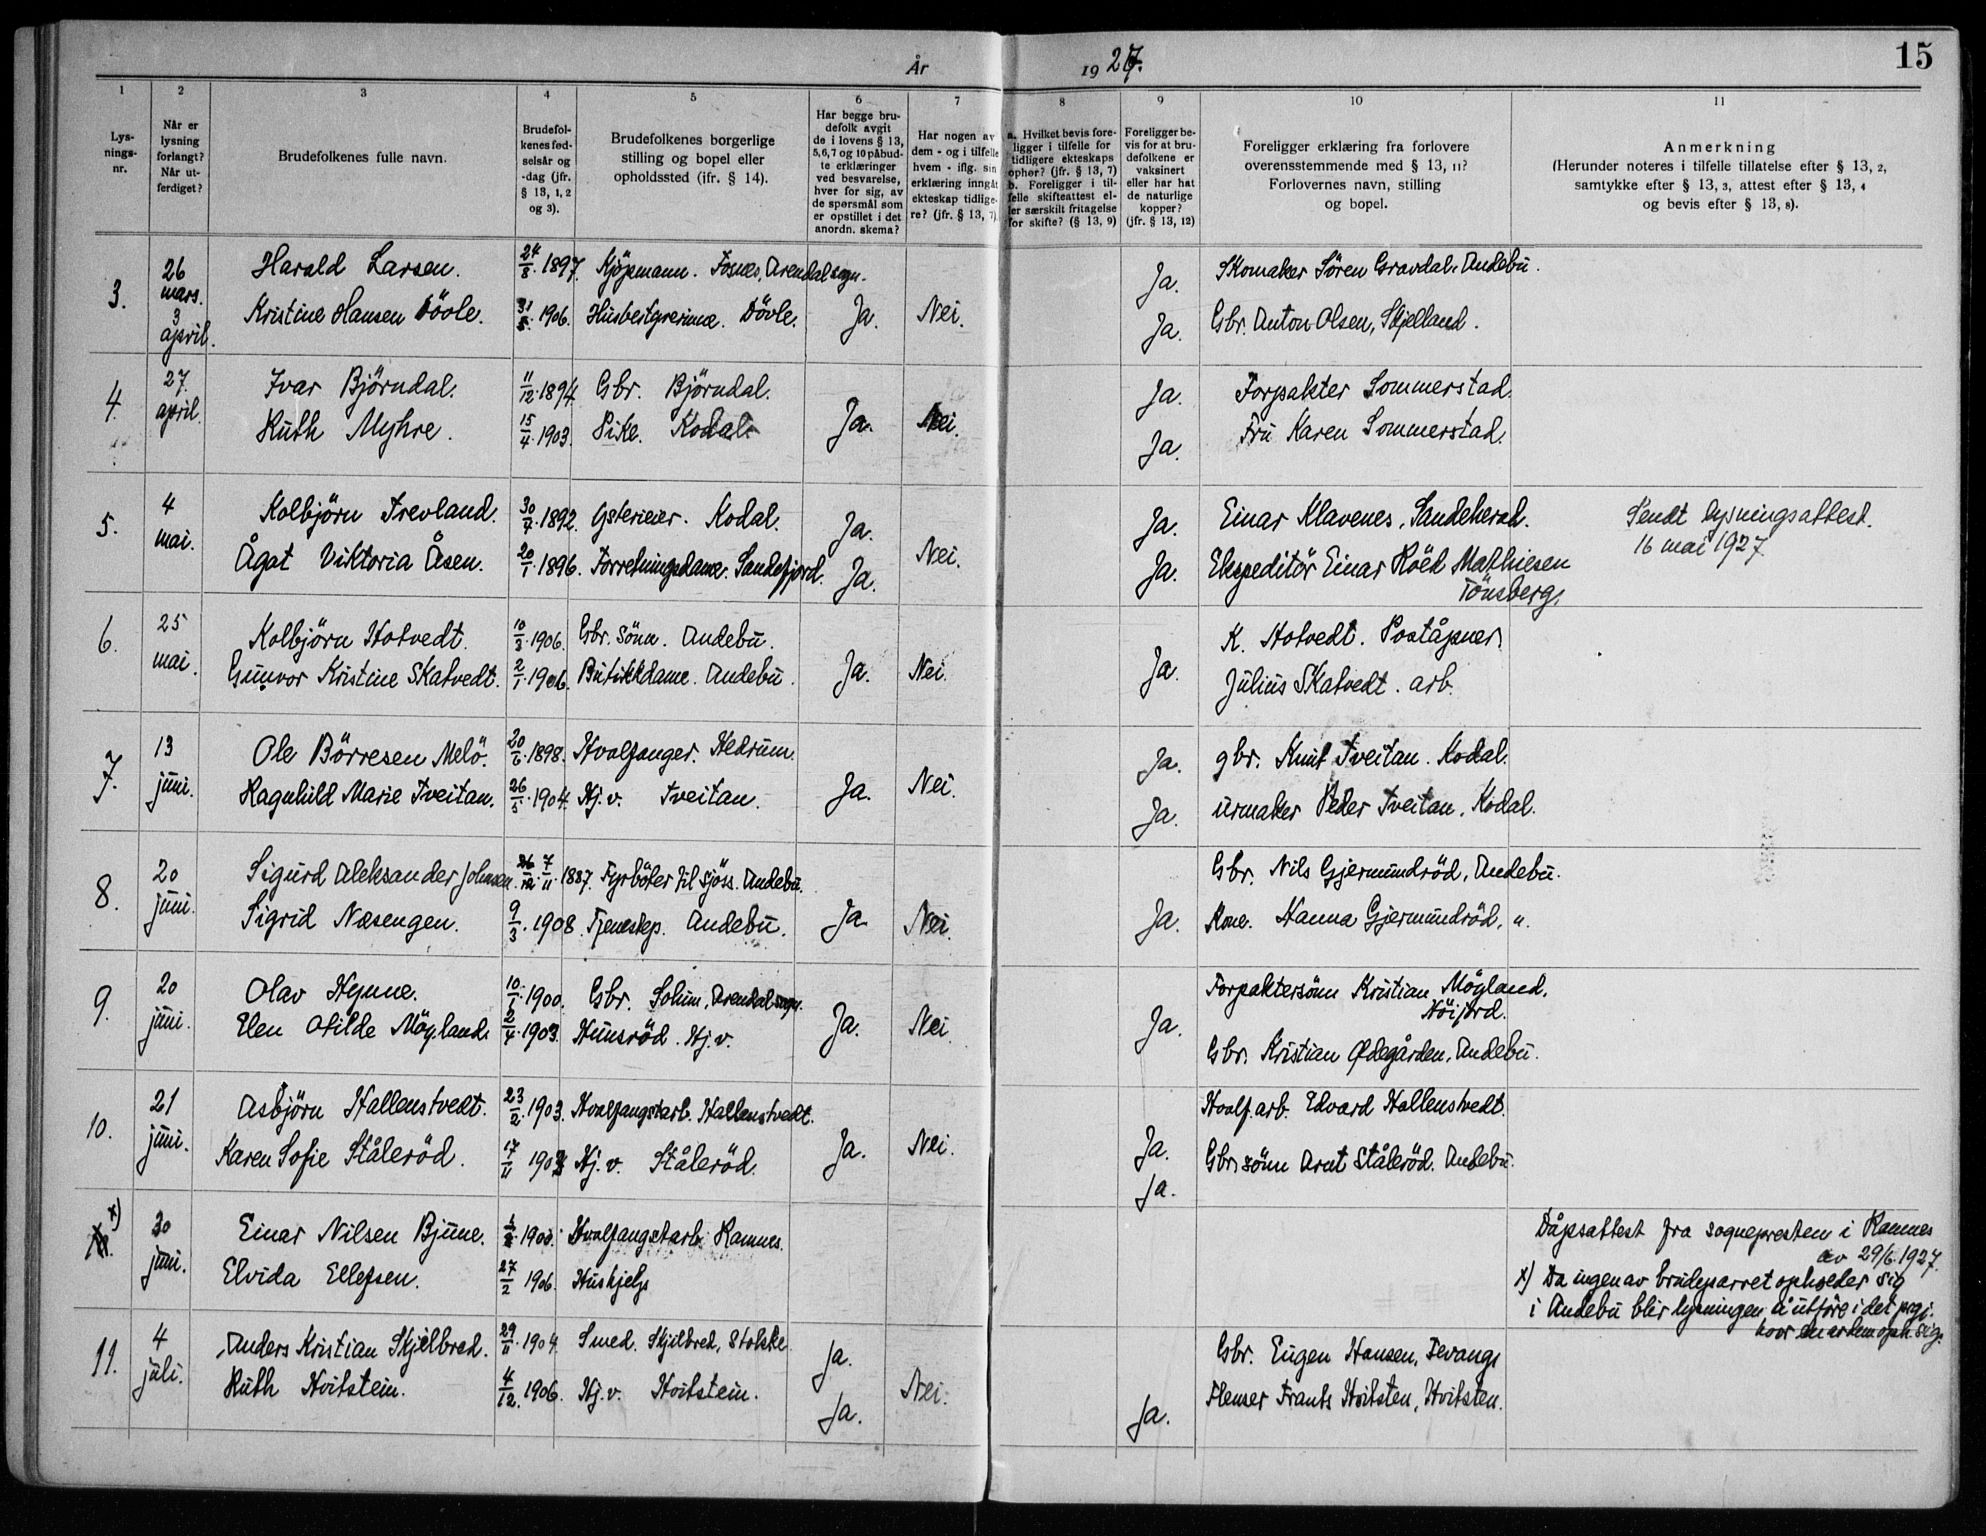 År 1927.
15
1 2 3 4 5 6 7 8 9 10 11
Lys-
nings-
nr.
Når er
lysning
forlangt?
Når ut-
ferdiget?
Brudefolkenes fulle navn.
Brudefol-
kenes fød-
selsår og
-dag (jfr.
§ 13, 1, 2
og 3).
Brudefolkenes borgerlige
stilling og bopel eller
opholdssted (ifr. § 14).
Har begge bru-
defolk avgit
de i lovens § 13,
5, 6, 7 og 10 påbud-
te erklæringer
ved besvarelse,
hver for sig, av
de spørsmål som
er opstillet i det
anordn. skema?
Har nogen av
dem - og i tilfelle
hvem - iflg. sin
erklæring inngått
ekteskap tidlige-
re? (jfr. § 13, 7)
a. Hvilket bevis fore-
ligger i tilfelle for
tidligere ekteskaps
ophør? (jfr. § 13, 7)
b. Foreligger i til-
felle skifteattest el-
ler særskilt fritagelse
for skifte? (§ 13, 9)
Foreligger be-
vis for at bru-
defolkene er
vaksinert
eller har hat
de naturlige
kopper?
(jfr. § 13, 12)
Foreligger erklæring fra forlovere
overensstemmende med § 13, 11?
Forlovernes navn, stilling
og bopel.
Anmerkning
(Herunder noteres i tilfelle tillatelse efter § 13, 2,
samtykke efter § 13, 3, attest efter § 13, 4
og bevis efter § 13, 8).
3. 26 mars. 3 april.
Harald Larsen. 24/8. 1897. Kjöpmann. Fosnes, Arendal sogn. Ja. Skomaker Sören Gravdal. Andebu.
Kristine Hansen Dövle. 31/8. 1906. Husbestyrerinne. Dövle. Ja. Nei. Ja. Gbr. Anton Olsen, Skjelland.
4. 27. april.
Ivar Björndal. 11/12. 1894. Gbr. Björndal. Ja. Forpakter Sommerstad.
Ruth Myhre. 15/4. 1903. Pike. Kodal. Ja. Nei. Ja. Fru Karen Sommerstad.
5. 4 mai.
Kolbjörn Trevland. 30/7. 1892. Gsteieier. Kodal. Ja. Ja. Einar Klavenes, Sandeherad. Sendt lysningsattest.
16 mai 1927.
Ågot Viktoria Åsen. 20/1. 1896. Forretningsdame. Sandefjord. Ja. Nei. Ja. Ekspeditör Einar Röed Mathiesen
Tönsberg.
6. 25 mai.
Kolbjörn Hotvedt. 10/3. 1906. Gbr. sönn. Andebu. K. Hotvedt. Poståpner.
Gunvor Kristine Skatvedt. 2/1. 1906. Butikkdame. Andebu. Ja. Nei. Ja. Julius Skatvedt. arb.
7. 13 juni.
Ole Börresen Melö. 20/6. 1898. Hvalfanger. Hedrum. Ja. gbr. Knut Tveitan. Kodal.
Ragnhild Marie Tveitan. 26/5. 1904. Hj.v. Tveitan. Ja. Nei. Ja. urmaker Peder Tveitan. Kodal.
8. 20 juni.
Sigurd Aleksander Johnsen. 7/11. 1887. Fyrböter til sjöss. Andebu. Gbr. Nils Gjermundröd, Andebu.
Sigrid Næsengen. 9/3. 1908. Tjenestep. Andebu. Ja. Nei. Ja. Kone. Hanna Gjermundröd, ".
9. 20 juni.
Olav Hynne. 10/1. 1900. Gbr. Solum, Arendal sogn. Forpaktersönn Kristian Möyland.
Höijord.
Elen Otilde Möyland. 2/4. 1903. Hunsröd. Hj.v. Ja. Nei. Ja.
Gbr. Kristian Ødegården. Andebu.
10. 21 juni.
Asbjörn Hallenstvedt. 23/2. 1903. Hvalfangstarb. Hallenstvedt. Hvalf.arb. Edvard Hallenstvedt.
Karen Sofie Ståleröd. 17/11 1903 Hj.v. Ståleröd. Ja. Nei. Ja. Gbr. sönn Arnt Ståleröd. Andebu.
Ja.
x) 30 juni.
Einar Nilsen Bjune. 1900. Hvalfangstarb. Ramnes. Dåpsattest fra sognepresten i Ramnes
av 29/6 1927.
Elvida Ellefsen. 27/2 1906. Hushjelp x) Da ingen av brudeparret opholder sig
i Andebu blir lysningen å utföre i det prgj.
hvor en av dem oph. sig.
11. 4 juli.
Anders Kristian Skjelbred. 29/11. 1904. Smed. Skjelbred, Stokke. Ja. Gbr. Eugen Hansen, Tevang
Ruth Hvitstein. 4/12. 1906. Hj.v. Hvitstein. Ja. Nei. Ja. Flenser Frants Hvitsten, Hvitsten.